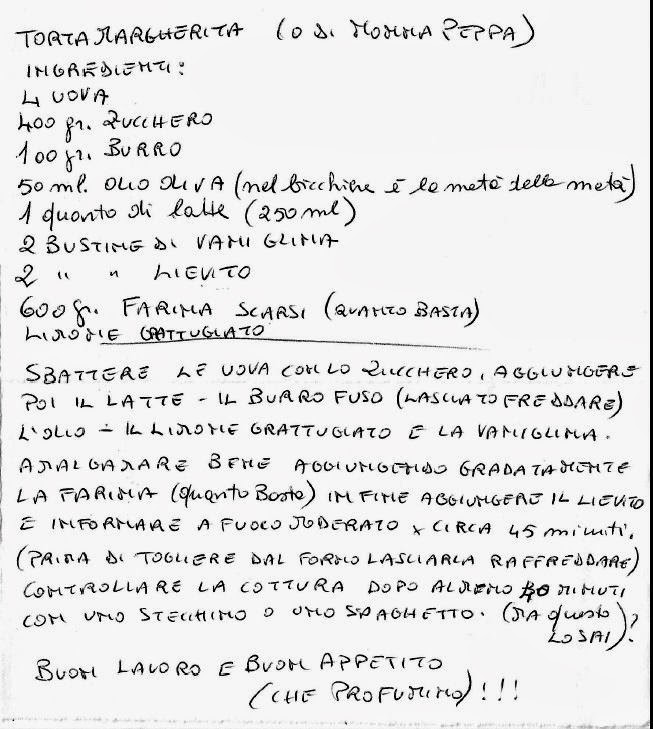 TORTA MARGHERITA (O DI NONNA PEPPA)
INGREDIENTI:
4 UOVA
400 gr. ZUCCHERO
100 gr. BURRO
50 ml. OLIO OLIVA (nel bicchiere è la metà della metà)
1 quarto di latte (250 ml)
2 BUSTINE DI VANIGLINA
2 " " LIEVITO
600 gr. FARINA SCARSI (QUANTO BASTA)
LIMONE GRATTUGIATO
SBATTERE LE UOVA CON LO ZUCCHERO, AGGIUNGERE
POI IL LATTE - IL BURRO FUSO (LASCIATO FREDDARE)
L'OLIO - IL LIMONE GRATTUGIATO E LA VANIGLINA.
AMALGAMARE BENE AGGIUNGENDO GRADATAMENTE
LA FARINA (quanto Basta) INFINE AGGIUNGERE IL LIEVITO
E INFORNARE A FUOCO MODERATO x CIRCA 45 minuti.
(PRIMA DI TOGLIERE DAL FORNO LASCIARLA RAFFREDDARE)
CONTROLLARE LA COTTURA DOPO ALMENO MINUTI
CON UNO STECCHINO O UNO SPAGHETTO. (MA questo
LO SAI)?
BUON LAVORO E BUON APPETITO
(CHE PROFUMINO)!!!